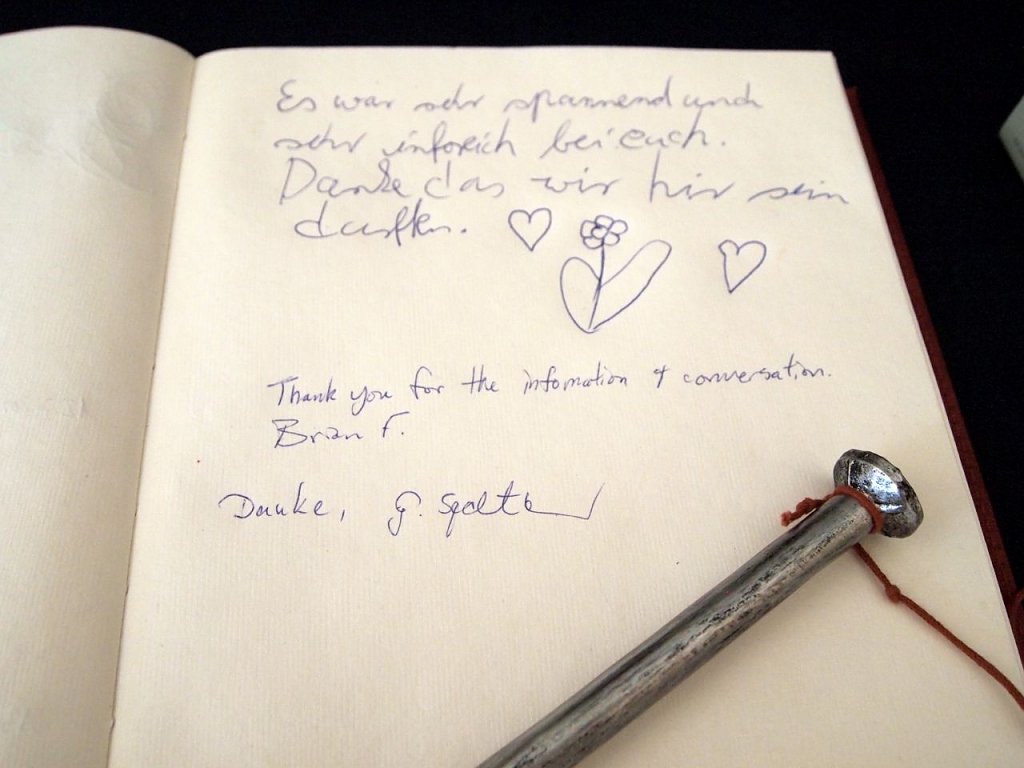 Es war sehr spannend und
sehr inforeich bei euch.
Danke das wir hir sein
durften.
Thank you for the information & conversation.
Brian F.
Danke, G.